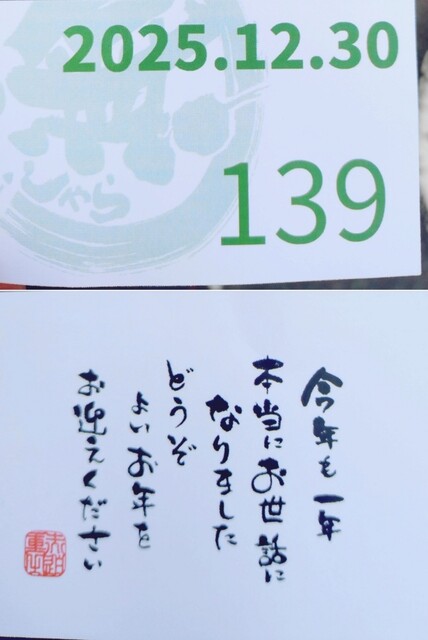 2025.12.30
139
今年も一年
本当にお世話に
なりました
どうぞ
よいお年を
お迎えください